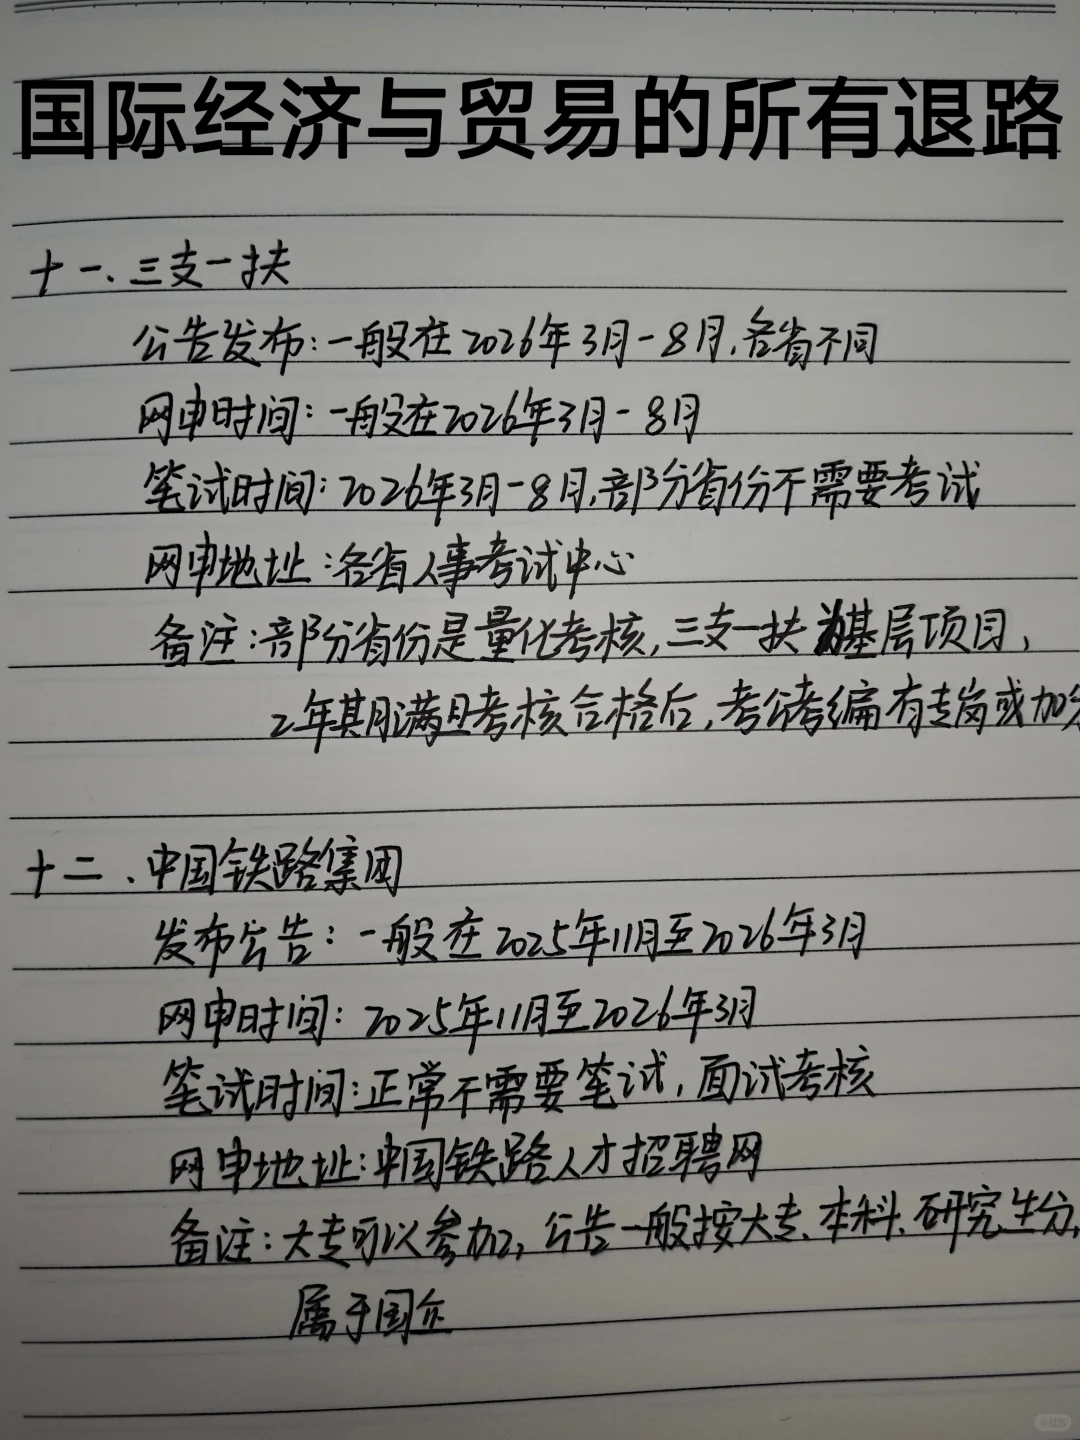 国际经济与贸易的所有退路
十一、三支一扶
公告发布:一般在2026年3月-8月,各省不同
网申时间:一般在2026年3月-8月
笔试时间:2026年3月-8月,部分省份不需要考试
网申地址:各省人事考试中心
备注:部分省份是量化考核,三支一扶为基层项目,
2年期满且考核合格后,考公考编有专岗或加分
十二、中国铁路集团
发布公告:一般在2025年11月至2026年3月
网申时间:2025年11月至2026年3月
笔试时间:正常不需要笔试,面试考核
网申地址:中国铁路人才招聘网
备注:大专可以参加,公告一般按大专、本科、研究生分,
属于国企